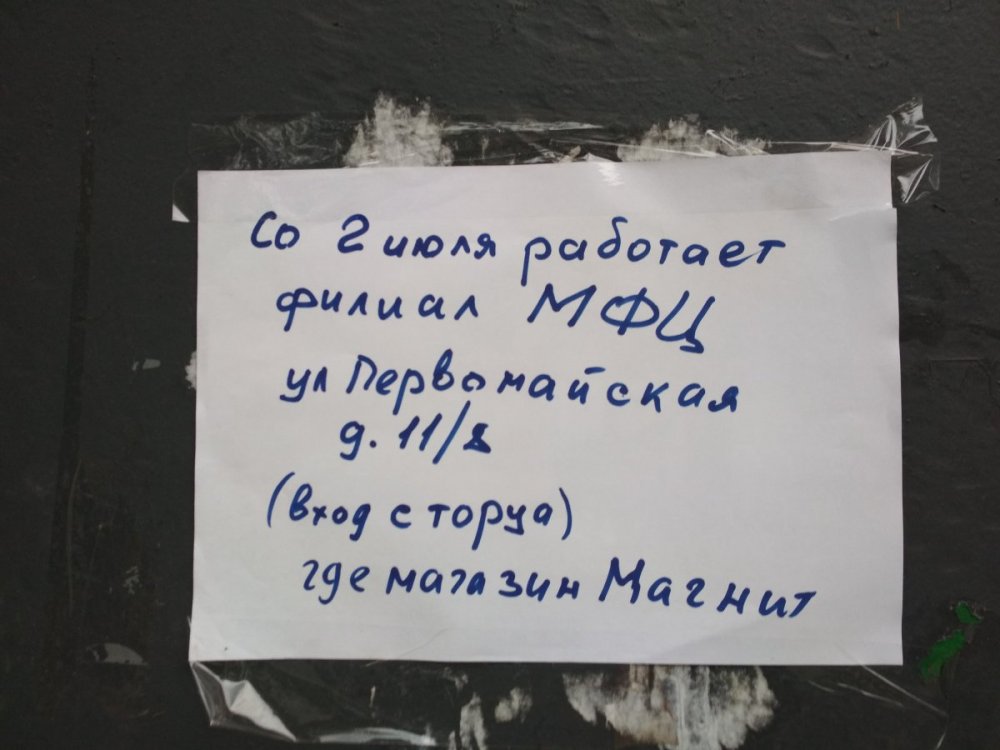 Со 2 июля работает
филиал МФЦ
ул Первомайская
д. 11/
(вход с торца)
где магазин Магнит